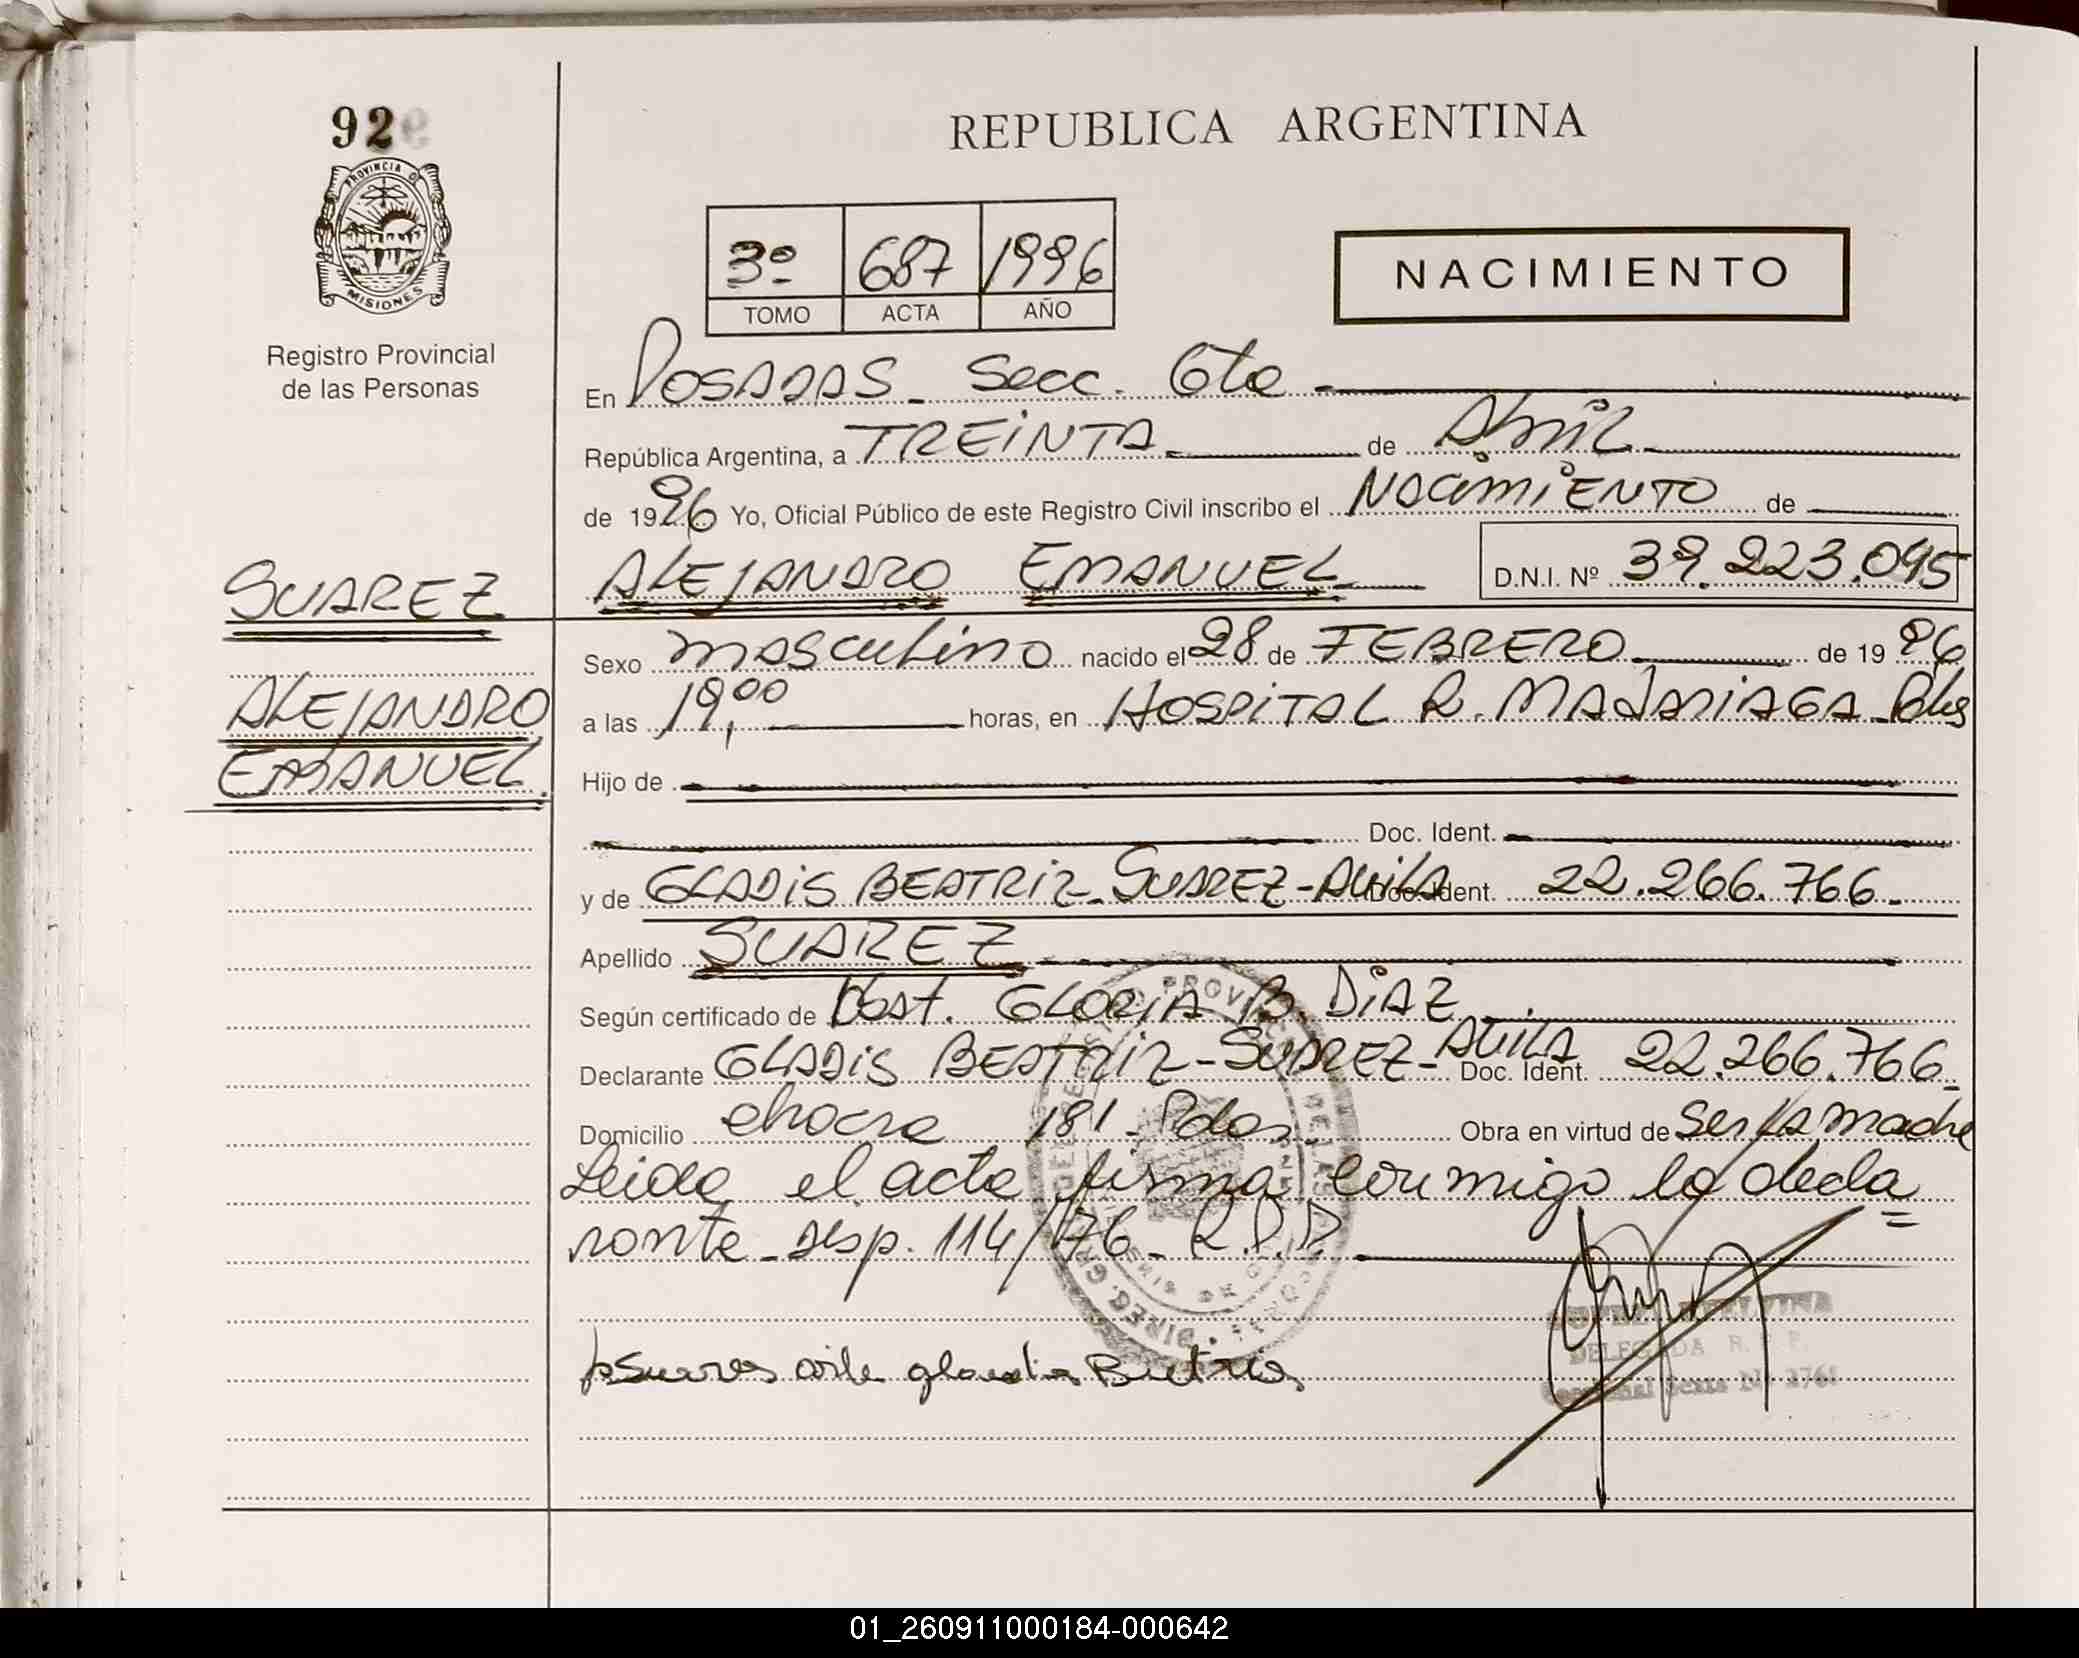 92
REPUBLICA ARGENTINA
PROVINCIA D
MISIONES
Registro Provincial
de las Personas
3º 687 1996
TOMO ACTA AÑO
NACIMIENTO
En Posadas - Secc. 6ta -
República Argentina, a TREINTA de Abril
de 1996 Yo, Oficial Público de este Registro Civil inscribo el NACIMIENTO de
SUAREZ
ALEJANDRO EMANUEL D.N.I. Nº 39.223.095
ALEJANDRO
EMANUEL.
Sexo masculino nacido el 28 de FEBRERO de 1996
a las 19,00 horas, en HOSPITAL R. MADARIAGA - Pdas
Hijo de
Doc. Ident.
y de GLADIS BEATRIZ - SUAREZ - AVILA Doc. Ident. 22.266.766.-
Apellido SUAREZ
Según certificado de Obst. GLORIA B. DIAZ
Declarante GLADIS BEATRIZ - SUAREZ - AVILA Doc. Ident. 22.266.766-
Domicilio chacra 181 - Pdas. Obra en virtud de ser la madre
Leida el acta firma conmigo la decla=
rante - Disp. 114/76 - R.P.P.
DELEGADA R. P. P.
Sexta Nº
01_260911000184-000642